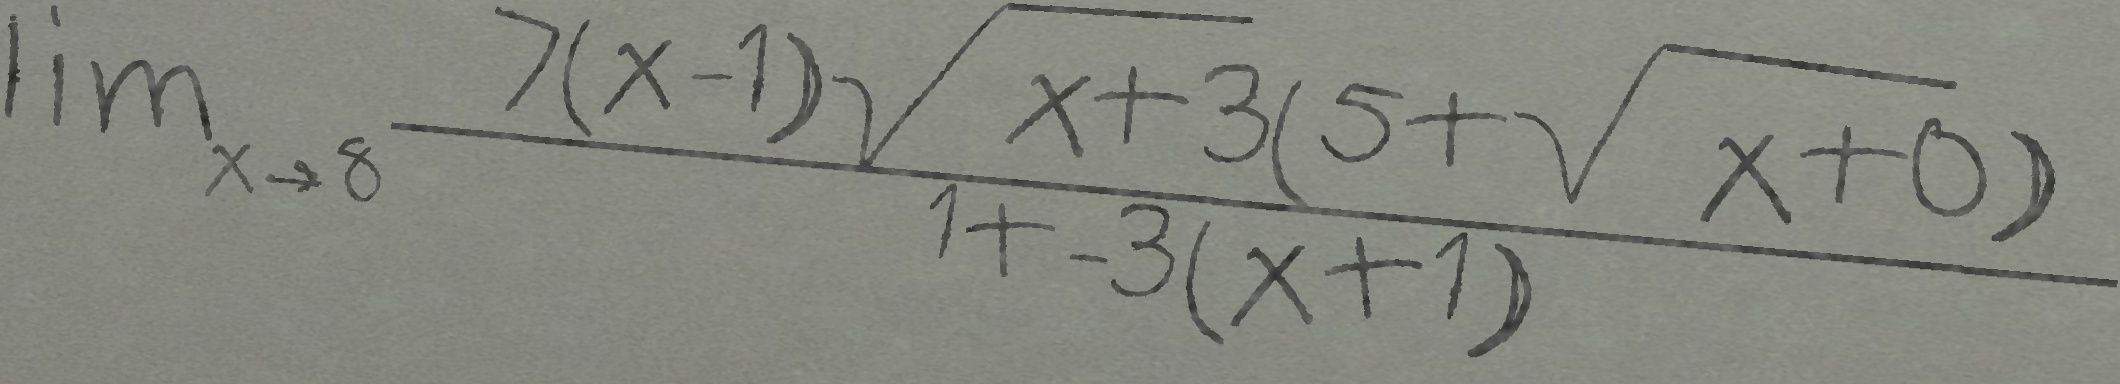 lim_{x→8} \frac{7(x-1)\sqrt{x+3}(5+\sqrt{x+0})}{1+-3(x+1)}